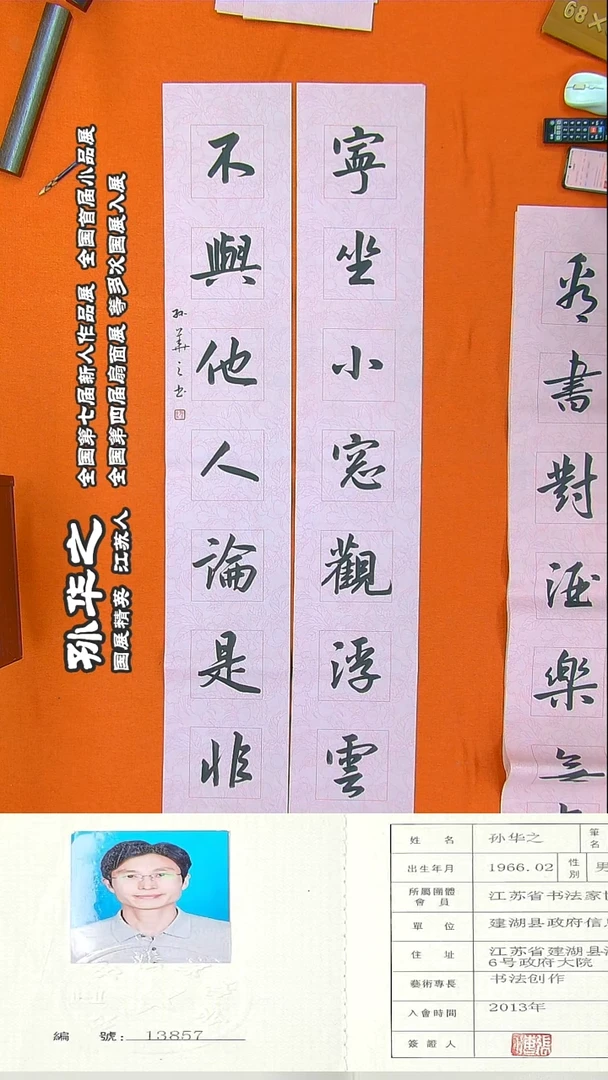 68×
寧坐小窓觀浮雲
不與他人論是非
孙華之书
看書對酒樂
孙华之
国展精英 江苏人
全国第七届新人作品展 全国首届小品展
全国第四届扇面展 等多次国展入展
编 號: 13857
姓 名 孙华之 筆名
出生年月 1966.02 性別 男
所屬團體會員 江苏省书法家协
單 位 建湖县政府信息
住 址 江苏省建湖县
6号政府大院
藝術專長 书法创作
入會時間 2013年
簽證人